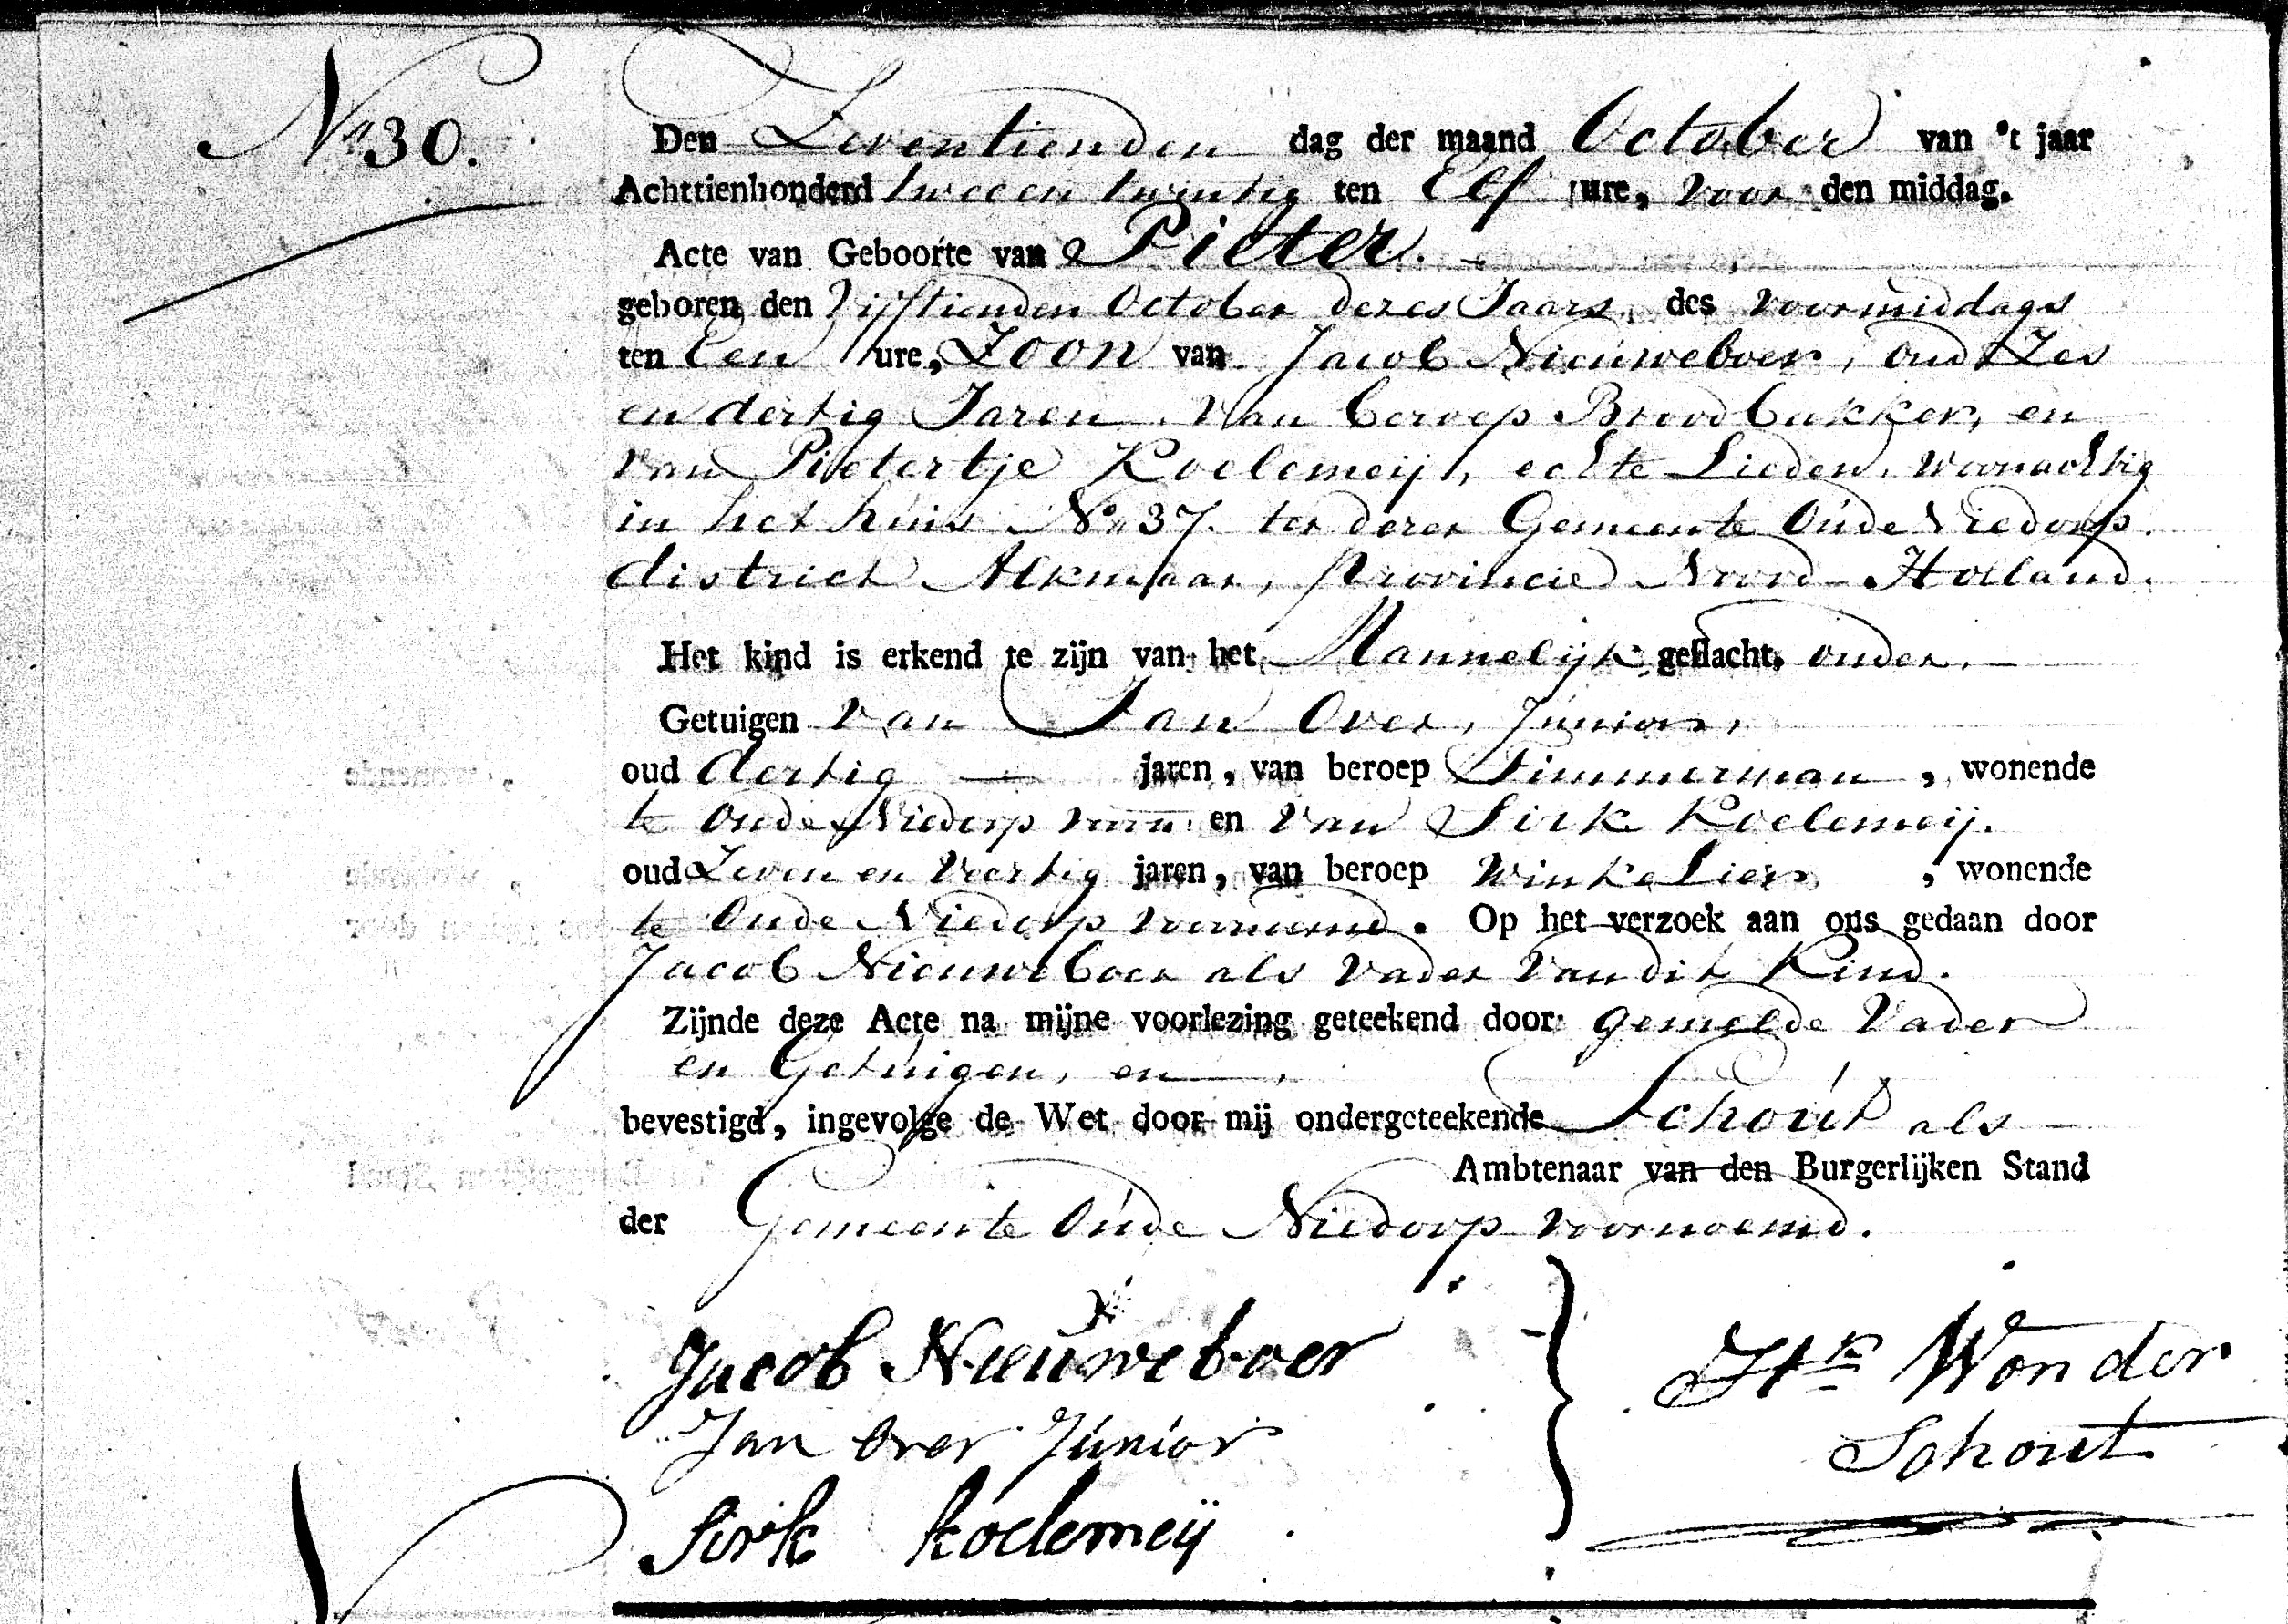 No 30.
Den Zeventienden dag der maand October van 't jaar
Achttienhonderd twee en twintig ten Elf ure, voor den middag.
Acte van Geboorte van Pieter.
geboren den Vijftienden October dezes Jaars, des voormiddags
ten Een ure, Zoon van Jacob Nieuweboer, oud Zes
en dertig Jaren, Van beroep Broodbakker, en
van Pietertje Koelemeij, echte Lieden, woonachtig
in het huis No 37. ter dezer Gemeente Oude Niedorp.
district Alkmaar, Provincie Noord-Holland.
Het kind is erkend te zijn van het Mannelijk geslacht, onder,
Getuigen van Jan Over, Junior,
oud dertig jaren, van beroep Timmerman, wonende
te Oude Niedorp en van Sirk Koelemeij.
oud Zeven en Veertig jaren, van beroep Winkelier, wonende
te Oude Niedorp voornoemd. Op het verzoek aan ons gedaan door
Jacob Nieuweboer als Vader van dit Kind.
Zijnde deze Acte na mijne voorlezing geteekend door gemelde Vader
en Getuigen, en
bevestigd, ingevolge de Wet door mij ondergeteekende Schout als
Ambtenaar van den Burgerlijken Stand
der Gemeente Oude Niedorp voornoemd.
Jacob Nieuweboer
Jan Over Junior
Sirk koelemeij
Hk Wonder
Schout